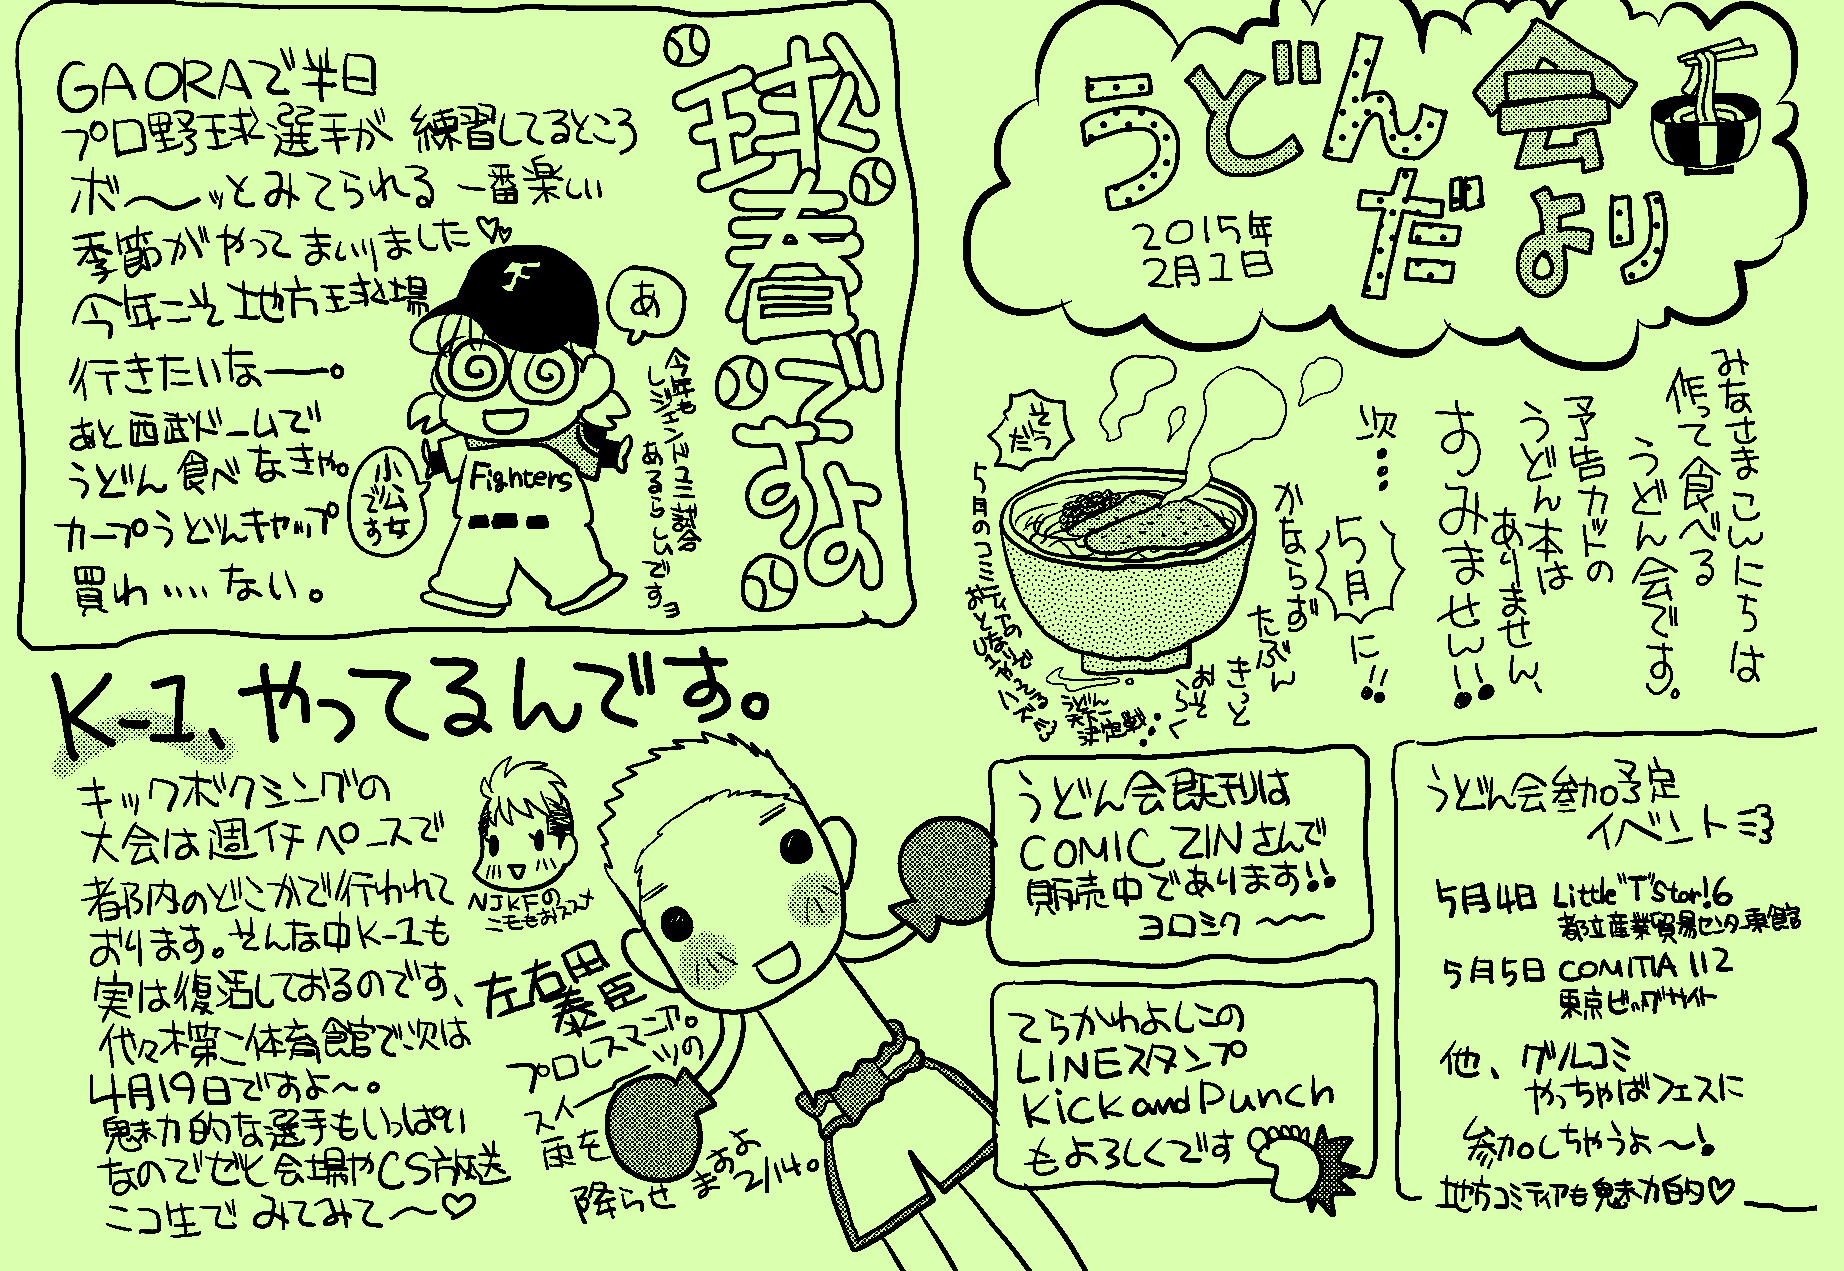 うどん会
だより
2015年
2月1日
みなさまこんにちは
作って食べる
うどん会です。
予告カットの
うどん本は
ありません、
すみません!!
次…
5月
に!!
かならず
たぶん
きっと
おそらく
そうだ
5月のコミティアの
うどん
天下一
決定戦
球春ですよ
GAORAで半日
プロ野球選手が練習してるところ
ボ〜ッとみてられる一番楽しい
季節がやってまいりました♡
今年こそ地方球場
行きたいなー。
あと西武ドームで
うどん食べなきゃ。
カープうどんキャップ
買わ‥‥ない。
あ
Fighters
小公女
です
今年も
レジェンドユニ試合
あるらしいですヨ
K-1、やってるんです。
キックボクシングの
大会は週イチペースで
都内のどこかで行われて
おります。そんな中K-1も
実は復活しておるのです、
代々木第二体育館で次は
4月19日ですよ〜。
魅力的な選手もいっぱい
なのでゼヒ会場やCS放送
ニコ生でみてみて〜♡
NJKFの
ニモもおススメ
左右田
泰臣
プロレスマニア。
スイーツの
雨を
降らせますよ
2/14。
うどん会既刊は
COMIC ZINさんで
販売中であります!!
ヨロミク〜〜
てらかわよしこの
LINEスタンプ
Kick and Punch
もよろしくです
うどん会参加予定
イベント
5月4日 Little"T"Star!6
都立産業貿易センター東館
5月5日 COMITIA 112
東京ビッグサイト
他、グルコミ
やっちゃばフェスに
参加しちゃうよ〜!
地方コミティアも魅力的♡